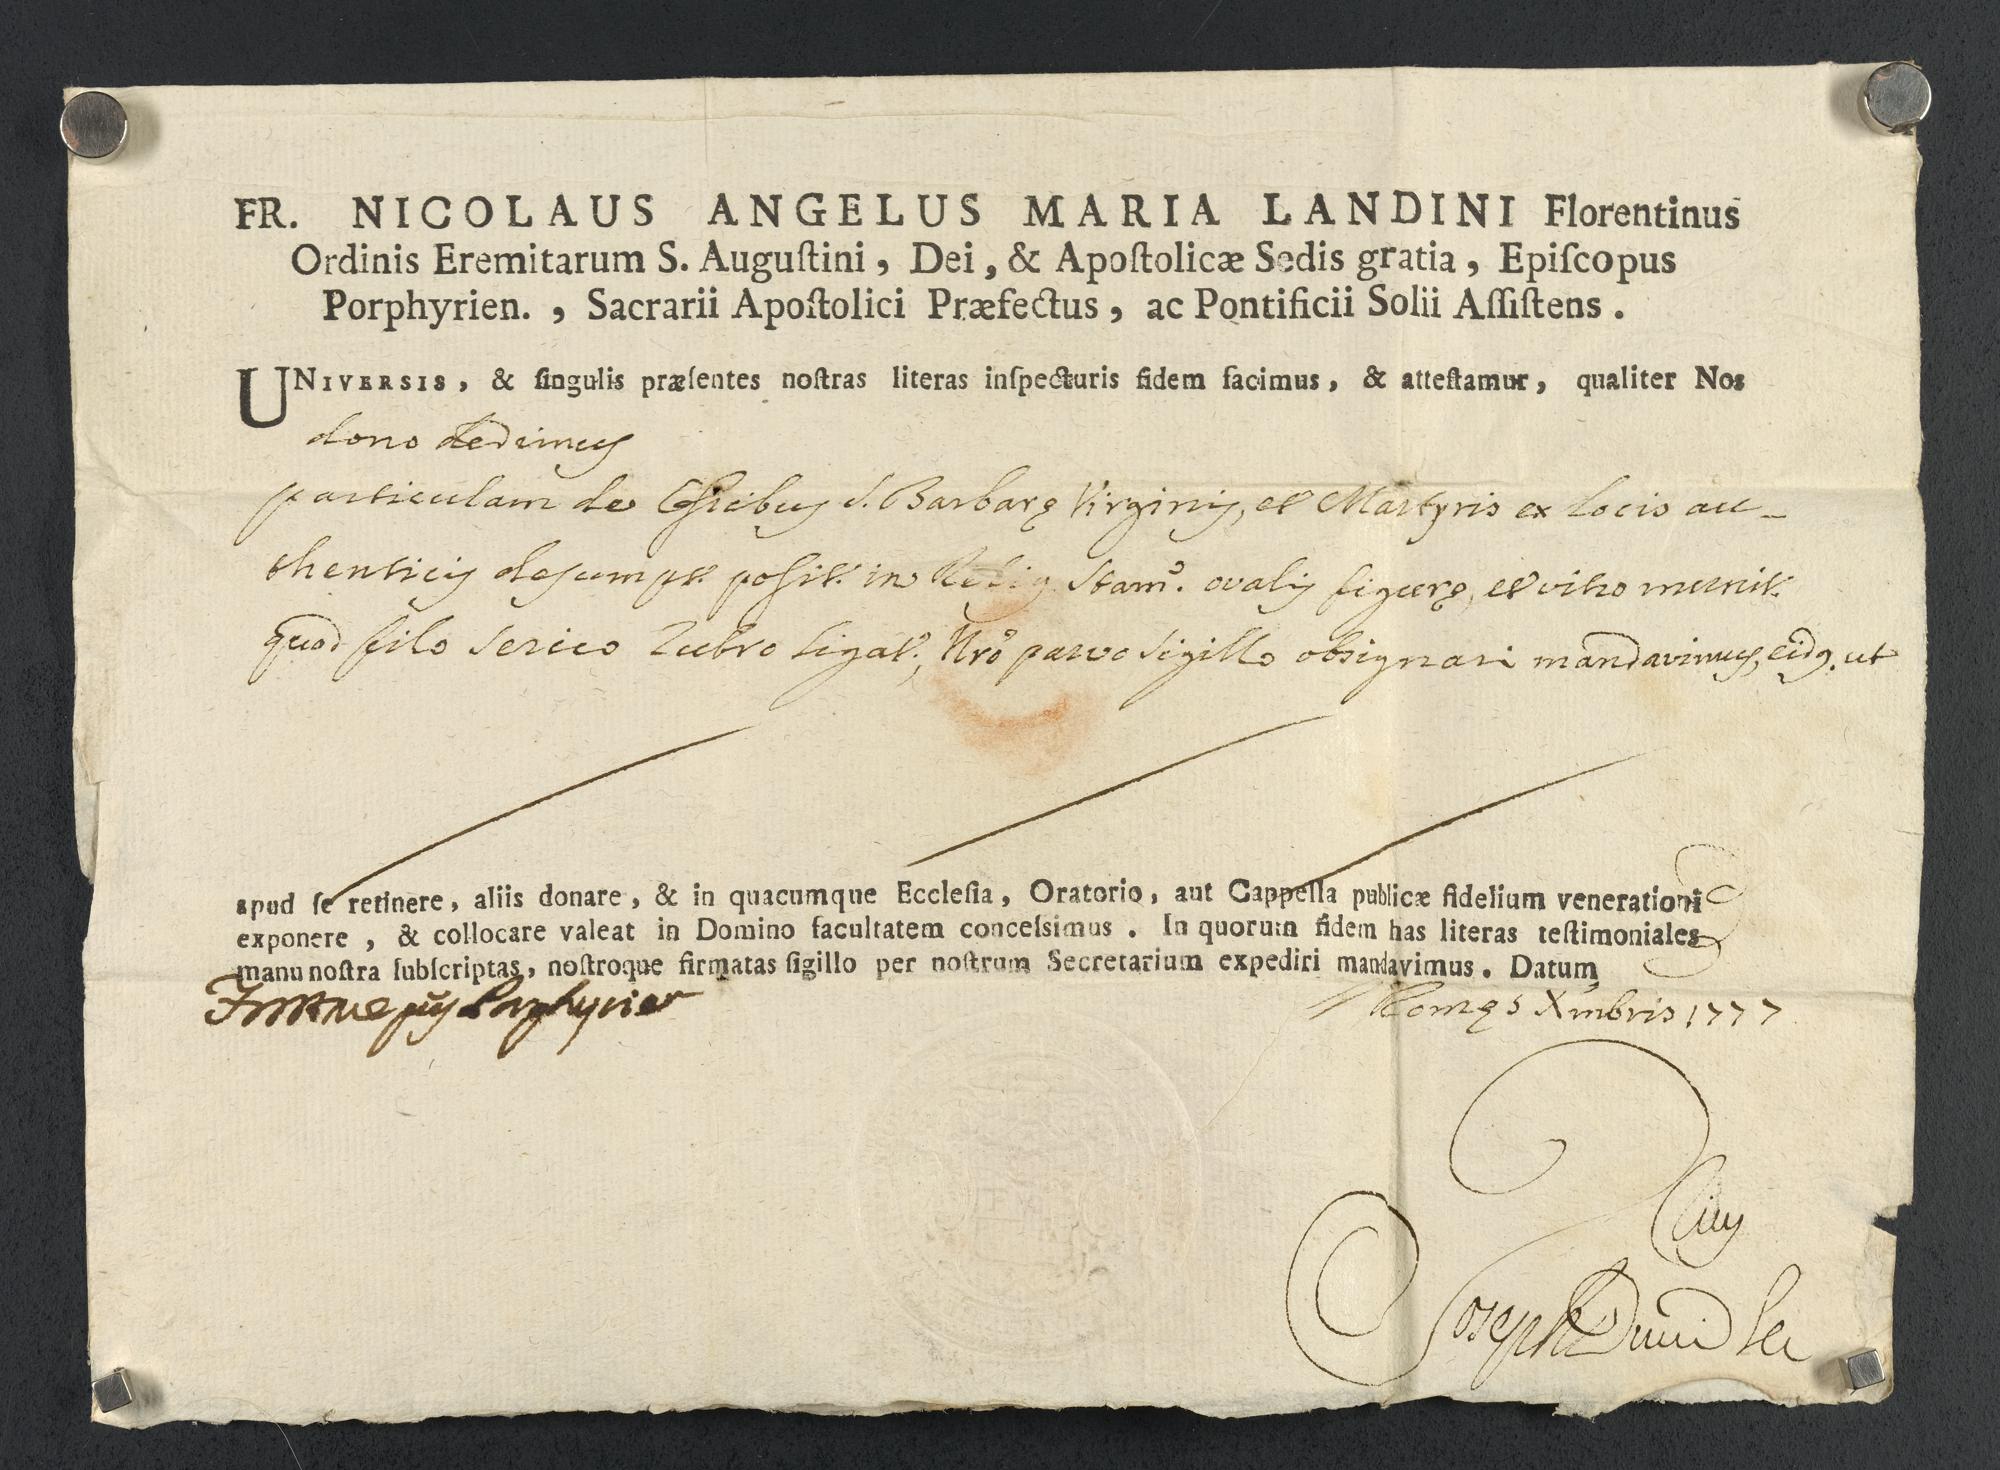 FR. NICOLAUS ANGELUS MARIA LANDINI Florentinus
Ordinis Eremitarum S. Auguſtini, Dei, & Apoſtolicæ Sedis gratia, Epiſcopus
Porphyrien., Sacrarii Apoſtolici Præfectus, ac Pontificii Solii Aſſiſtens.
UNIVERSIS, & ſingulis præſentes noſtras literas inſpecturis fidem facimus, & atteſtamur, qualiter Nos
dono dedimus
particulam de Ossibus S. Barbarę Virginis, et Martyris ex locis au-
thenticis desumpt. posit. in ovalis figurę, et vitro munit.
quod filo serico rubro ligat., Nr̃o parvo sigillo obsignari mandavimus, eidq. ut
apud ſe retinere, aliis donare, & in quacumque Eccleſia, Oratorio, aut Cappella publicæ fidelium venerationi
exponere, & collocare valeat in Domino facultatem conceſsimus. In quorum fidem has literas teſtimoniales
manu noſtra ſubſcriptas, noſtroque firmatas ſigillo per noſtrum Secretarium expediri mandavimus. Datum
Porphyrien
Romę Xmbris 1777
Joseph